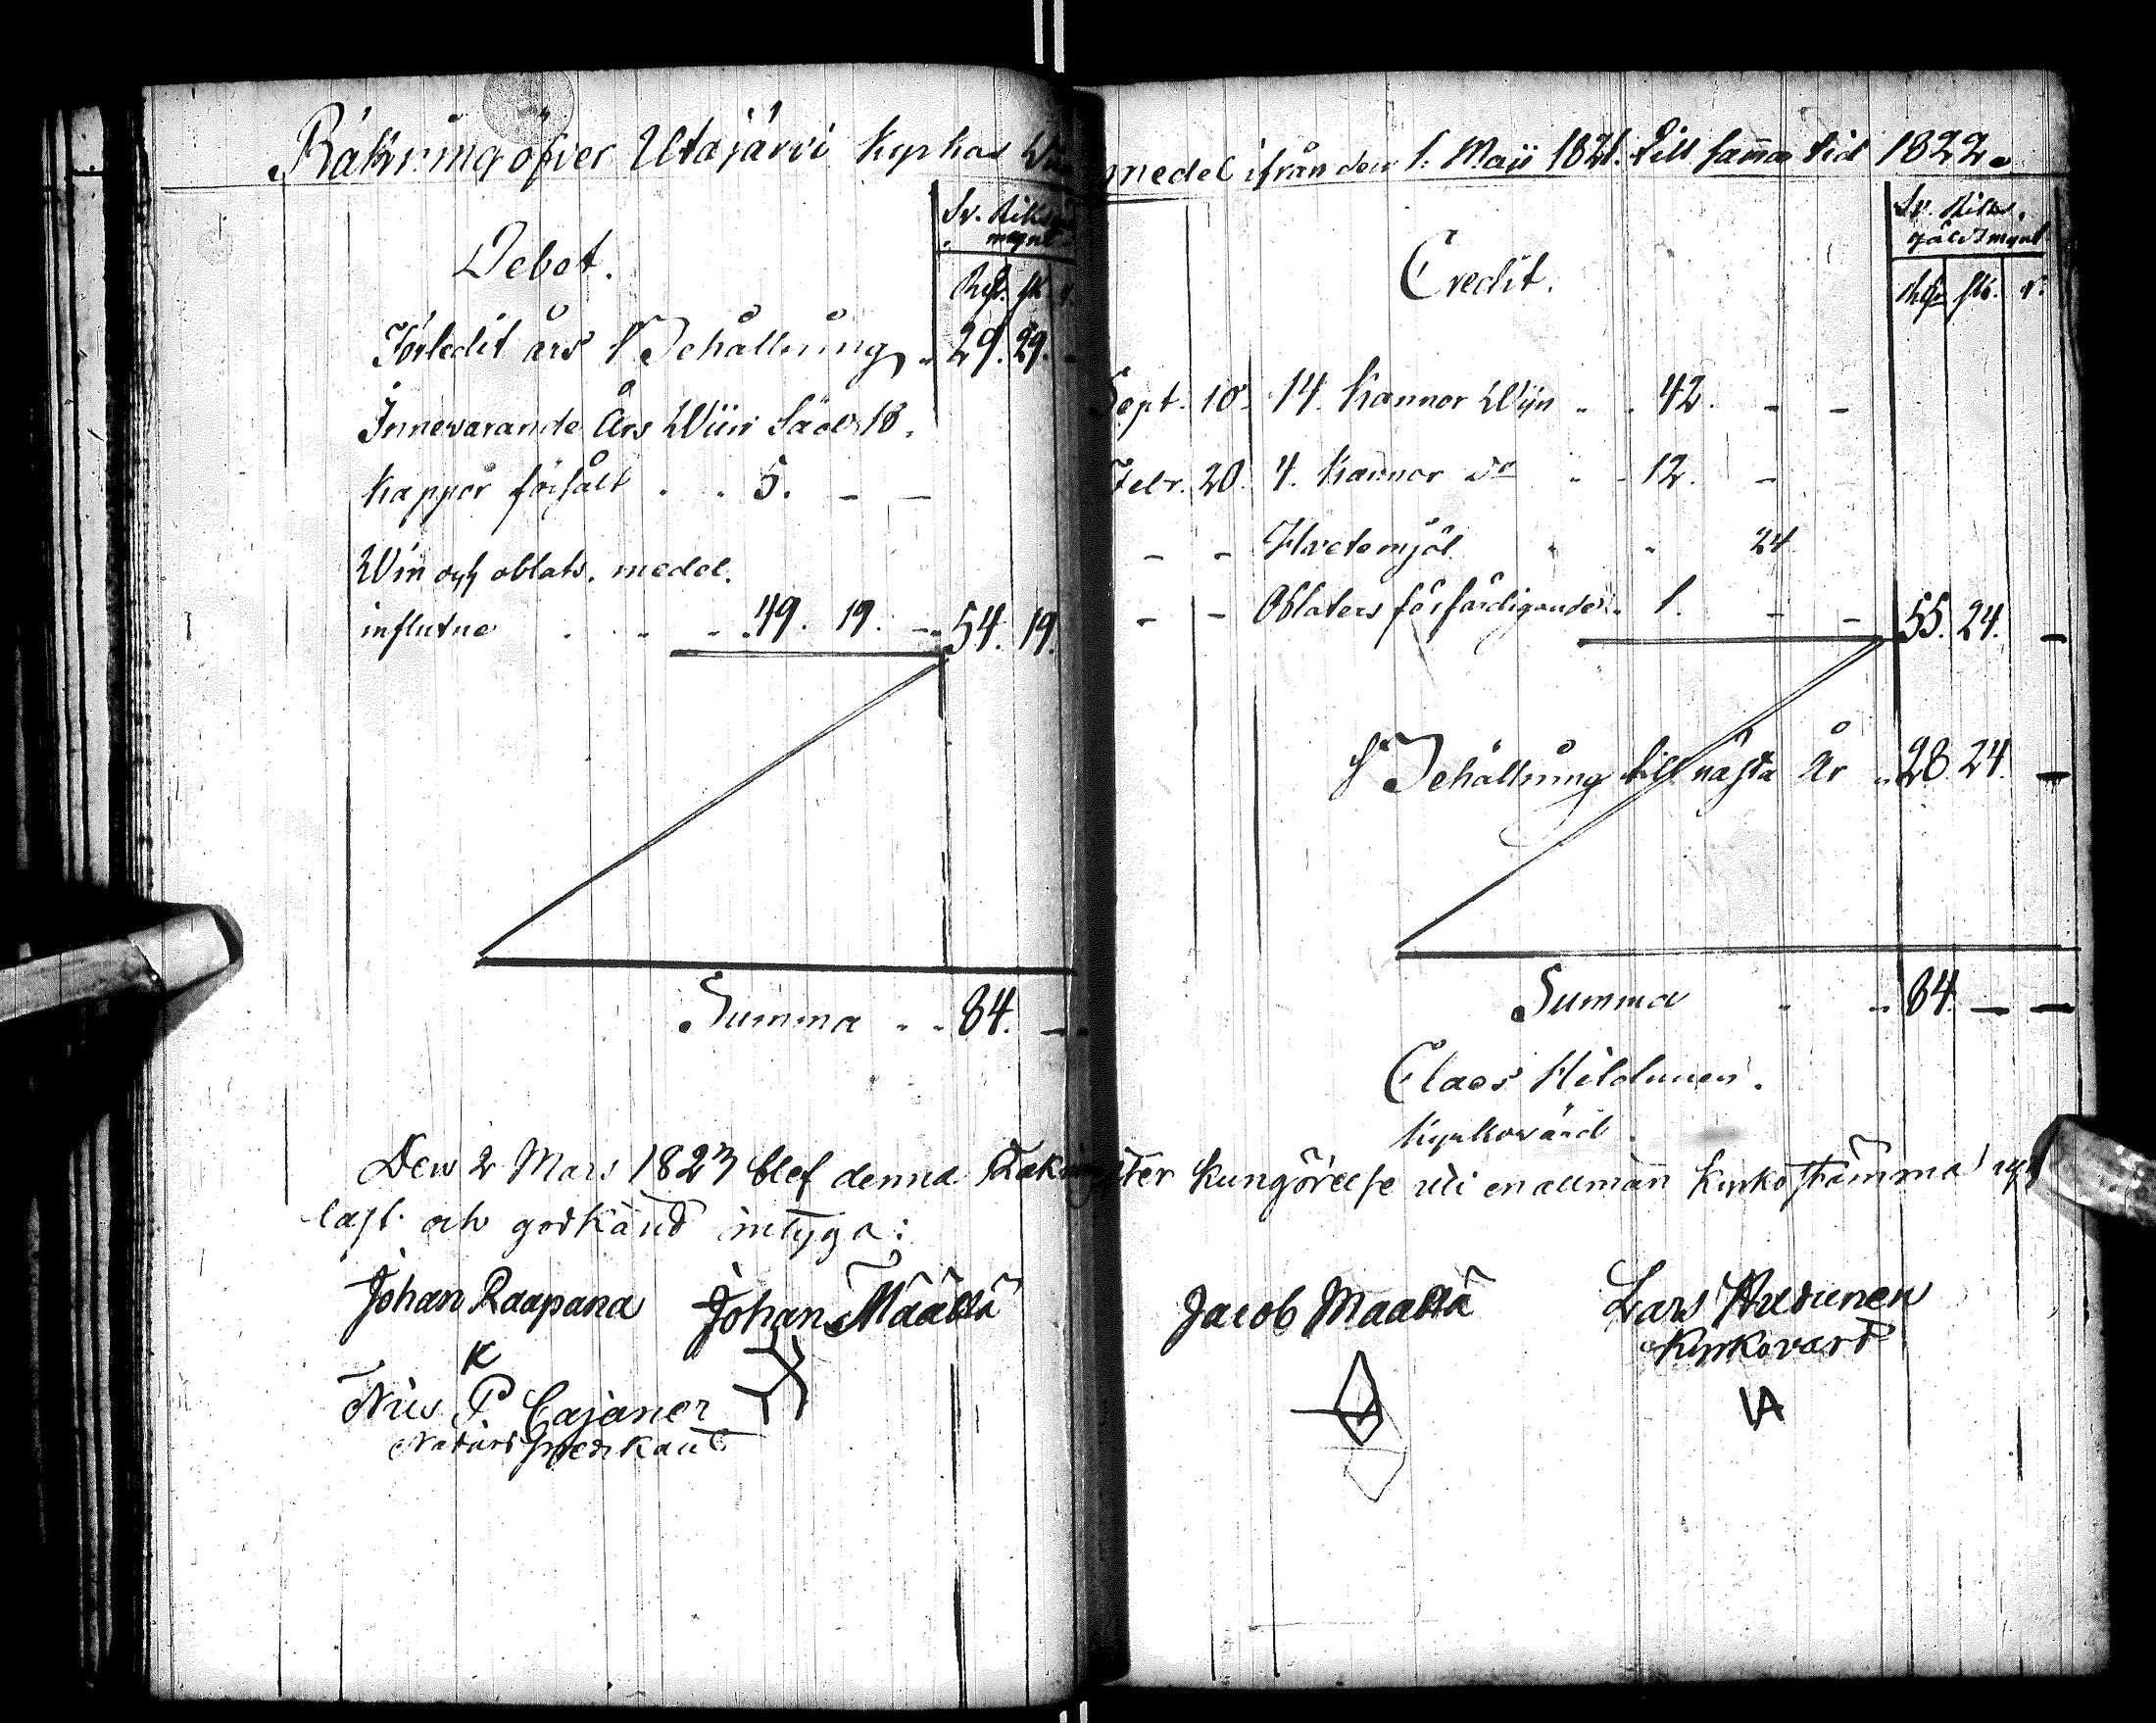 Räkning öfver Utajärvi Kyrkas
Debet.
Sv. Riks
mynt
Rd. sk. r.
Förledit års Behållning 29. 29. -
Innevarande Års Wiin Säd 18.
kappor försålt . . 5. - -
Win och oblats. medel.
influtne . . . 49. 19. - 54. 19.
Summa . . 84. -
medel ifrån den 1. Maii 1821. till samma tid 1822.
Credit.
Sv. Riks
gäldsmynt
Rd. sk. r.
Sept. 10. 14. Kannor Wijn . . 42. - -
Febr. 20. 4. Kannor do . . 12. - -
- - Hvetemjöl . . 24
- - Oblaters förfärdigande . 1. - - 55. 24. -
Behållning till nästa År . 28. 24. -
Summa . . 84. - -
Claes Hildunen.
Kyrkovärd.
Den 2 Mars 1823 blef denna Räkning efter kungörelse uti en allmän Kyrkostämma
läst och godkänd intyga:
Johan Raapana Johan Määttä Jacob Maattä Lars Hudunen
Kyrkovärd
K
Nils P. Cajaner
Predikant